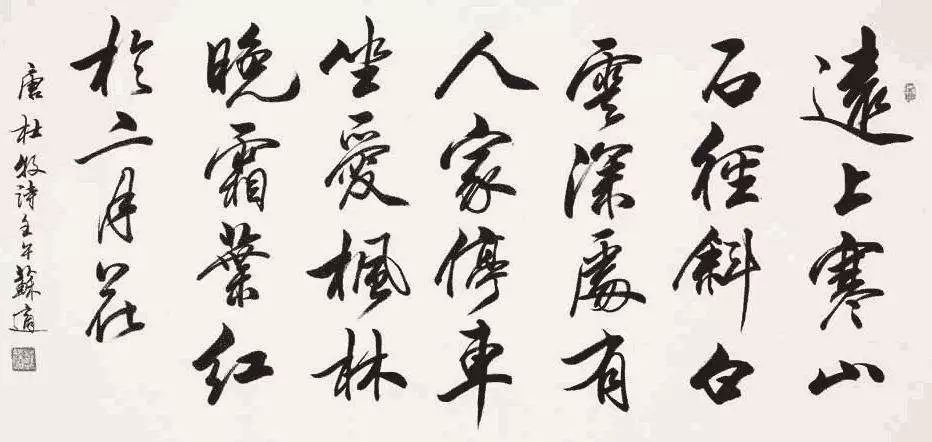 遠上寒山
石徑斜白
雲深處有
人家停車
坐愛楓林
晚霜葉红
於二月花
唐 杜牧詩壬午蘇適